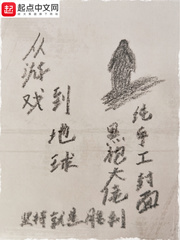 起点中文网
从游戏
到地球
纯手工封面
黑袍大佬
坚持就是胜利